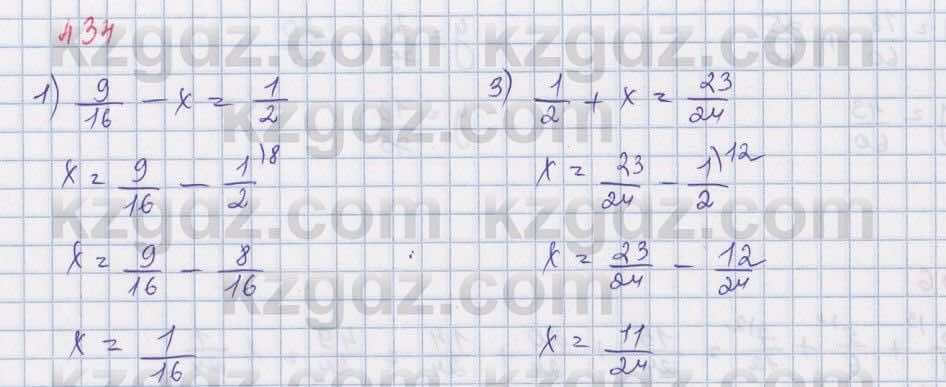 434
1) 9/16 - x = 1/2
x = 9/16 - 1/2 )8
x = 9/16 - 8/16
x = 1/16
3) 1/2 + x = 23/24
x = 23/24 - 1/2 )12
x = 23/24 - 12/24
x = 11/24
kzgdz.com kzgdz.com
kzgdz.com
kzgdz.com kzgdz.com
kzgdz.com
kzgdz.com kzgdz.com